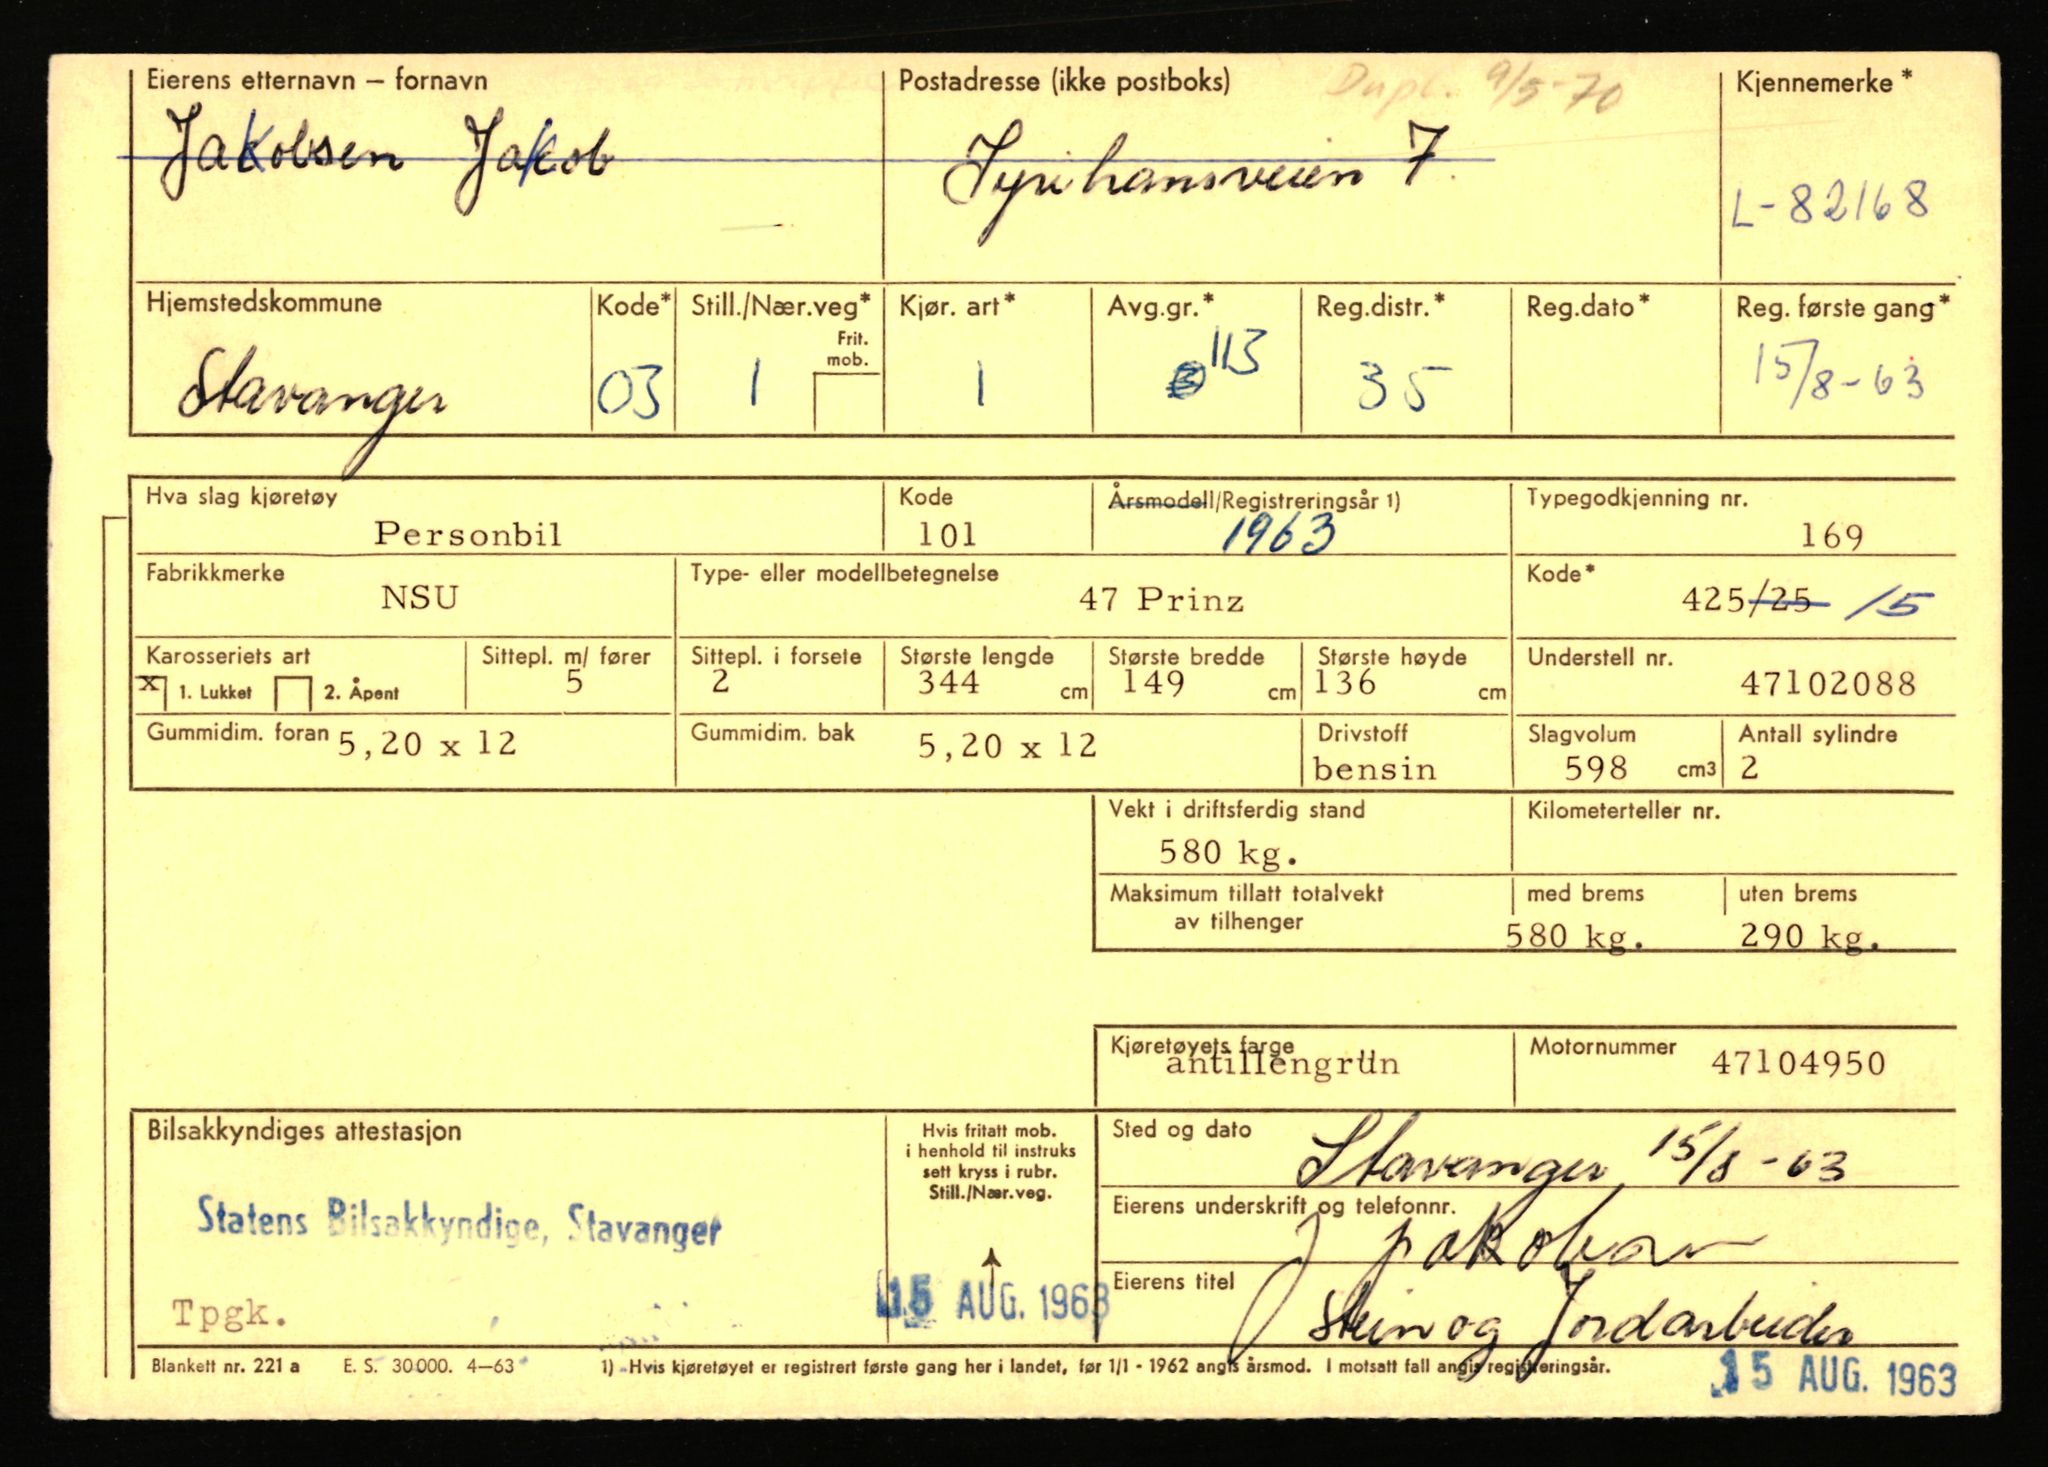 Eierens etternavn – fornavn
Postadresse (ikke postboks)
Dupl. 9/5-70
Kjennemerke*
Jakobsen Jakob
Tyrihansveien 7.
L-82168
Hjemstedskommune
Kode*
Still./Nær.veg*
Frit. mob.
Kjør. art*
Avg.gr.*
Reg.distr.*
Reg.dato*
Reg. første gang*
Stavanger
03
1
1
113
35
15/8-63
Hva slag kjøretøy
Kode
Årsmodell/Registreringsår 1)
Typegodkjenning nr.
Personbil
101
1963
169
Fabrikkmerke
Type- eller modellbetegnelse
Kode*
NSU
47 Prinz
425/25 /5
Karosseriets art
Sittepl. m/ fører
Sittepl. i forsete
Største lengde
Største bredde
Største høyde
Understell nr.
x 1. Lukket
2. Åpent
5
2
344 cm
149 cm
136 cm
47102088
Gummidim. foran 5,20 x 12
Gummidim. bak 5,20 x 12
Drivstoff
Slagvolum
Antall sylindre
bensin
598 cm3
2
Vekt i driftsferdig stand
Kilometerteller nr.
580 kg.
Maksimum tillatt totalvekt
av tilhenger
med brems
uten brems
580 kg.
290 kg.
Kjøretøyets farge
antillengrün
Motornummer
47104950
Bilsakkyndiges attestasjon
Hvis fritatt mob.
i henhold til instruks
sett kryss i rubr.
Still./Nær.veg.
Sted og dato
Stavanger 15/8-63
Statens Bilsakkyndige, Stavanger
Eierens underskrift og telefonnr.
J Jakobsen
15 AUG. 1963
Tpgk.
Eierens titel
Stein og Jordarbeider
Blankett nr. 221 a E. S. 30000. 4–63
1) Hvis kjøretøyet er registrert første gang her i landet, før 1/1 - 1962 angis årsmod. I motsatt fall angis registreringsår.
15 AUG. 1963